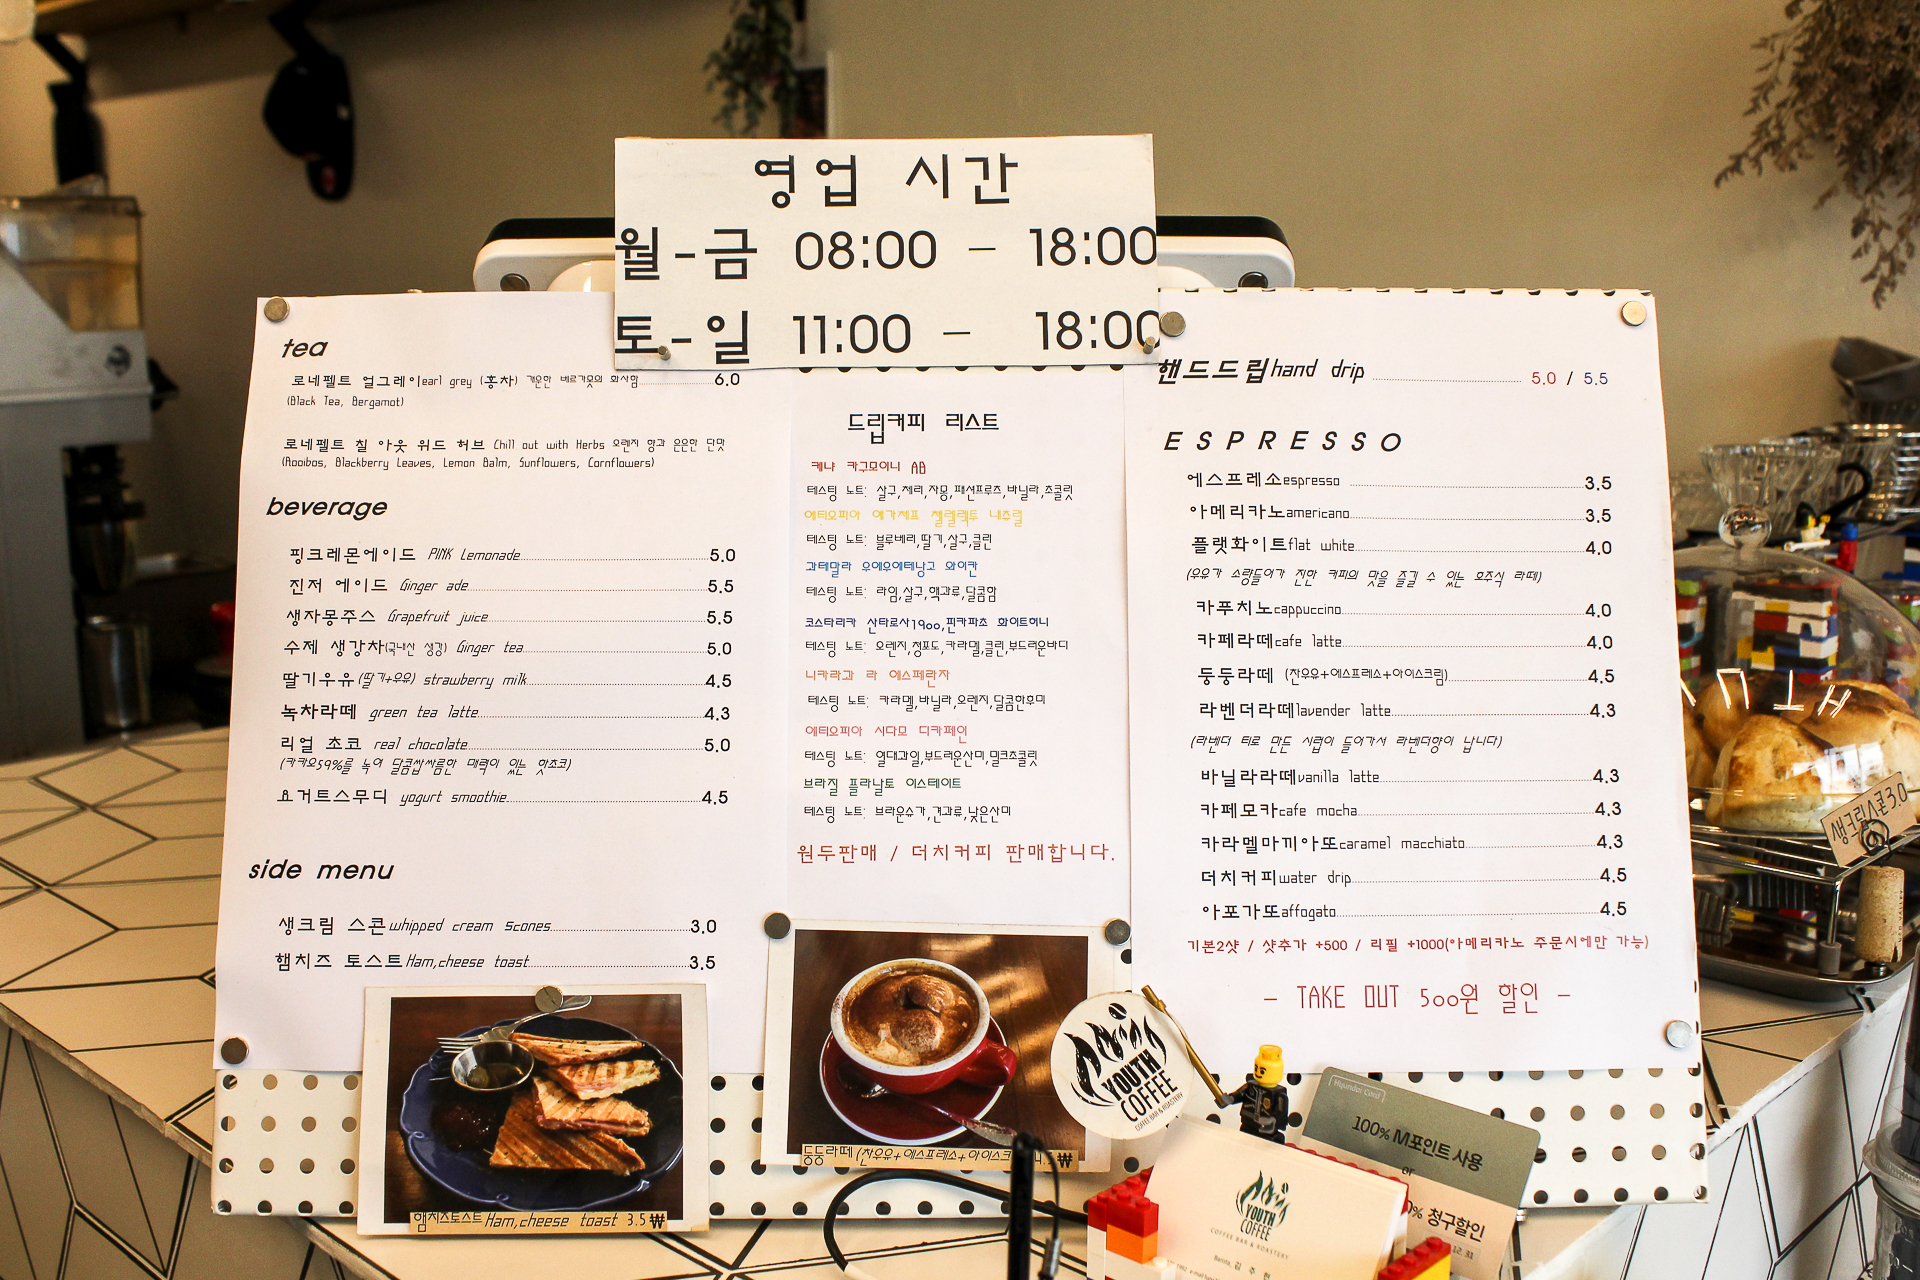 영업 시간
월-금 08:00 - 18:00
토-일 11:00 - 18:00
tea
로네펠트 얼그레이earl grey (홍차) 가운한 베르가못의 화사함 6.0
(Black Tea, Bergamot)
로네펠트 칠 아웃 위드 허브 Chill out with Herbs 오렌지 향과 은은한 단맛
(Rooibos, Blackberry Leaves, Lemon Balm, Sunflowers, Cornflowers)
beverage
핑크레몬에이드 PINK Lemonade 5.0
진저 에이드 Ginger ade 5.5
생자몽주스 Grapefruit juice 5.5
수제 생강차(국내산 생강) Ginger tea 5.0
딸기우유(딸기+우유) strawberry milk 4.5
녹차라떼 green tea latte 4.3
리얼 초코 real chocolate 5.0
(카카오59%를 녹여 달콤쌉싸름한 매력이 있는 핫초코)
요거트스무디 yogurt smoothie 4.5
side menu
생크림 스콘whipped cream Scones 3.0
햄치즈 토스트Ham,cheese toast 3.5
햄치즈토스트Ham,cheese toast 3.5₩
드립커피 리스트
케냐 카구모이니 AB
테스팅 노트: 살구,체리,자몽,패션프루츠,바닐라,초콜릿
에티오피아 예가체프 첼렐렉투 내츄럴
테스팅 노트: 블루베리,딸기,살구,클린
과테말라 우에우에테낭고 와이칸
테스팅 노트: 라임,살구,핵과류,달콤함
코스타리카 산타로사1900,핀카파초 화이트허니
테스팅 노트: 오렌지,청포도,카라멜,클린,부드러운바디
니카라과 라 에스페란자
테스팅 노트: 카라멜,바닐라,오렌지,달콤한후미
에티오피아 시다모 디카페인
테스팅 노트: 열대과일,부드러운산미,밀크초콜릿
브라질 플라날토 이스테이트
테스팅 노트: 브라운슈가,견과류,낮은산미
원두판매 / 더치커피 판매합니다.
둥둥라떼(찬우유+에스프레소+아이스크 4.5₩
핸드드립hand drip 5.0 / 5.5
ESPRESSO
에스프레소espresso 3.5
아메리카노americano 3.5
플랫화이트flat white 4.0
(우유가 소량들어가 진한 커피의 맛을 즐길 수 있는 호주식 라떼)
카푸치노cappuccino 4.0
카페라떼cafe latte 4.0
둥둥라떼 (찬우유+에스프레소+아이스크림) 4.5
라벤더라떼lavender latte 4.3
(라벤더 티로 만든 시럽이 들어가서 라벤더향이 납니다)
바닐라라떼vanilla latte 4.3
카페모카cafe mocha 4.3
카라멜마끼아또caramel macchiato 4.3
더치커피water drip 4.5
아포가또affogato 4.5
기본2샷 / 샷추가 +500 / 리필 +1000(아메리카노 주문시에만 가능)
- TAKE OUT 500원 할인 -
YOUTH
COFFEE
COFFEE BAR & ROASTERY
Hyundai Card
100% M포인트 사용
or
0% 청구할인
12. 31
YOUTH
COFFEE
COFFEE BAR & ROASTERY
김 주 현
생크림스콘3.0